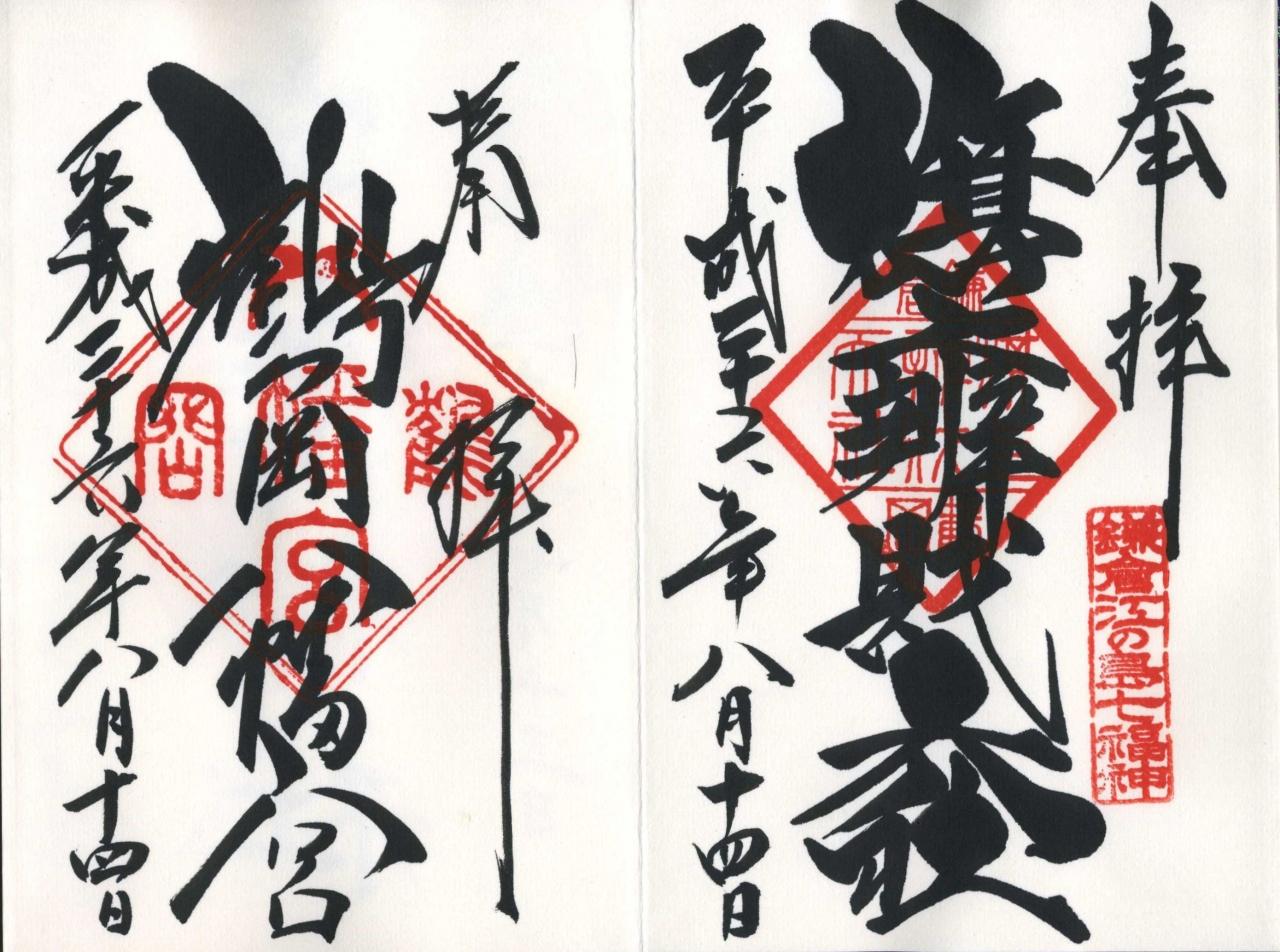 奉拝
鎌倉江の島七福神
旗上辨財天社
平成二十六年八月十四日
奉拝
鶴岡八幡宮
鶴岡八幡宮
平成二十六年八月十四日